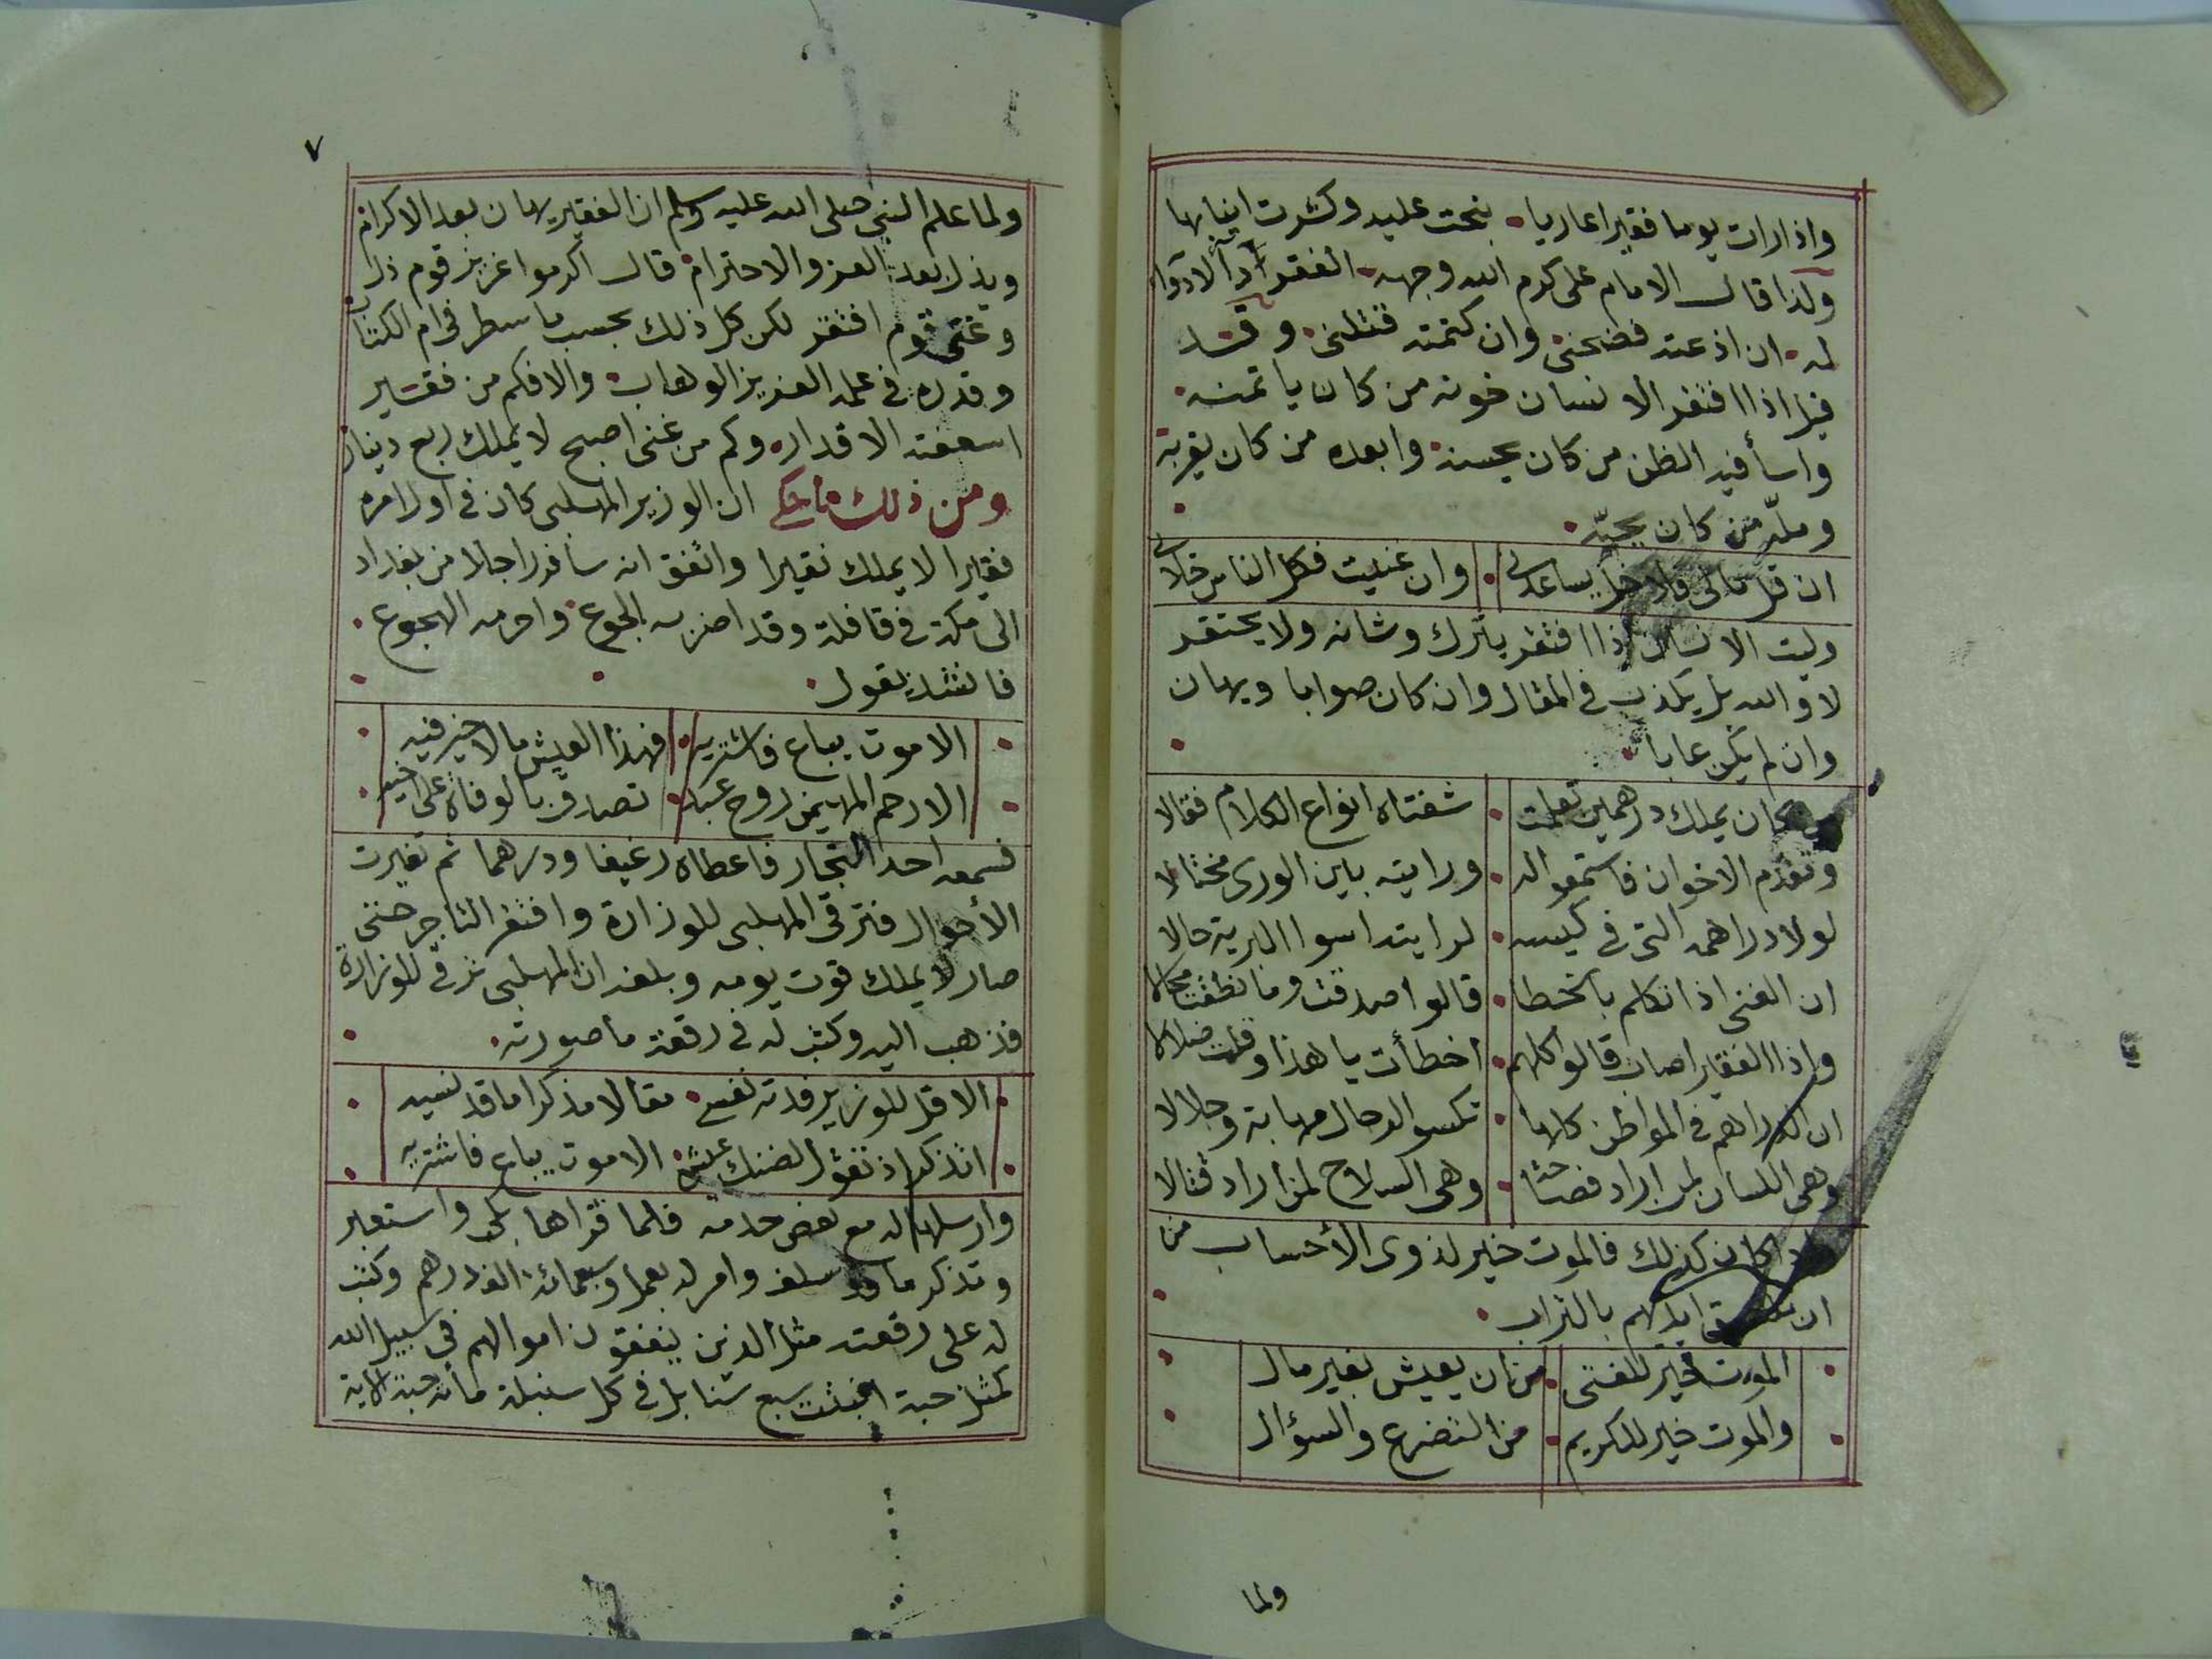 واذا رات يوما فقيرا عاريا نبحت عليه وكشرت انيابها
ولذا قال الامام على كرم الله وجهه الفقر داء لا دوآء
له ان اذعته فضحنى وان كتمته قتلنى وقد
قيل اذا افتقر الانسان خونه من كان ياتمنه
واسأ فيه الظن من كان يحسنه وابعده من كان يقربه
وملّه من كان يحبّه
ان قل مالى فلا خل يساعدنى وان غنيت فكل الناس خلانى
وليت الانسان اذا افتقر يترك وشانه ولا يحتقر
لا والله بل يكذب فى المقال وان كان صوابا ويهان
وان لم يكن عابا
من كان يملك درهمين تعلمت شفتاه انواع الكلام فقالا
وتقدم الاخوان فاستمعوا له ورايته بين الورى مختالا
لولا دراهمه التى فى كيسه لرايته اسوا البرية حالا
ان الغنى اذا تكلم بالخطا قالوا صدقت وما نطقت محالا
واذا الفقير اصاب قالوا كلهم اخطأت يا هذا وقلت ضلالا
ان الدراهم فى المواطن كلها تكسو الرجال مهابة وجلالا
وهى اللسان لمن اراد فصاحة وهى السلاح لمن اراد قتالا
واذا كان كذلك فالموت خير لذوى الأحساب من
ان ايديهم بالتراب
الموت خير للفتى من ان يعيش بغير مال
والموت خير للكريم من التضرع والسؤال
ولما
٧
ولما علم النبى صلى الله عليه وسلم ان الفقير يهان بعد الاكرام
ويذل بعد العز والاحترام قال اكرموا عزيز قوم ذل
وغنى قوم افتقر لكن كل ذلك بحسب ما سطر فى ام الكتاب
وقدره فى علمه العزيز الوهاب والا فكم من فقير
اسعفته الاقدار وكم من غنى اصبح لا يملك ربع دينار
ومن ذلك ما حكى ان الوزير المهلبى كان فى اول امره
فقيرا لا يملك نقيرا واتفق انه سافر راجلا من بغداد
الى مكة فى قافلة وقد اضر به الجوع واحرمه الهجوع
فانشد يقول
الا موت يباع فاشتريه فهذا العيش ما لا خير فيه
الا رحم المهيمن روح عبد تصدق بالوفاة على اخيه
فسمعه احد التجار فاعطاه رغيفا ودرهما ثم تغيرت
الأحوال فترقى المهلبى للوزارة وافتقر التاجر حتى
صار لا يملك قوت يومه وبلغه ان المهلبى ترقى للوزارة
فذهب اليه وكتب له فى رقعة ما صورته
الا قل للوزير فدته نفسى مقالا مذكرا ما قد نسيه
اتذكر اذ تقول لضنك عيش الا موت يباع فاشتريه
وارسلها له مع بعض خدمه فلما قراها بكى واستعبر
وتذكر ما قد سلف وامر له بعمل وسبعمائة الف درهم وكتب
له على رقعته مثل الذين ينفقون اموالهم فى سبيل الله
كمثل حبة انبتت سبع سنابل فى كل سنبلة مائة حبة الاية